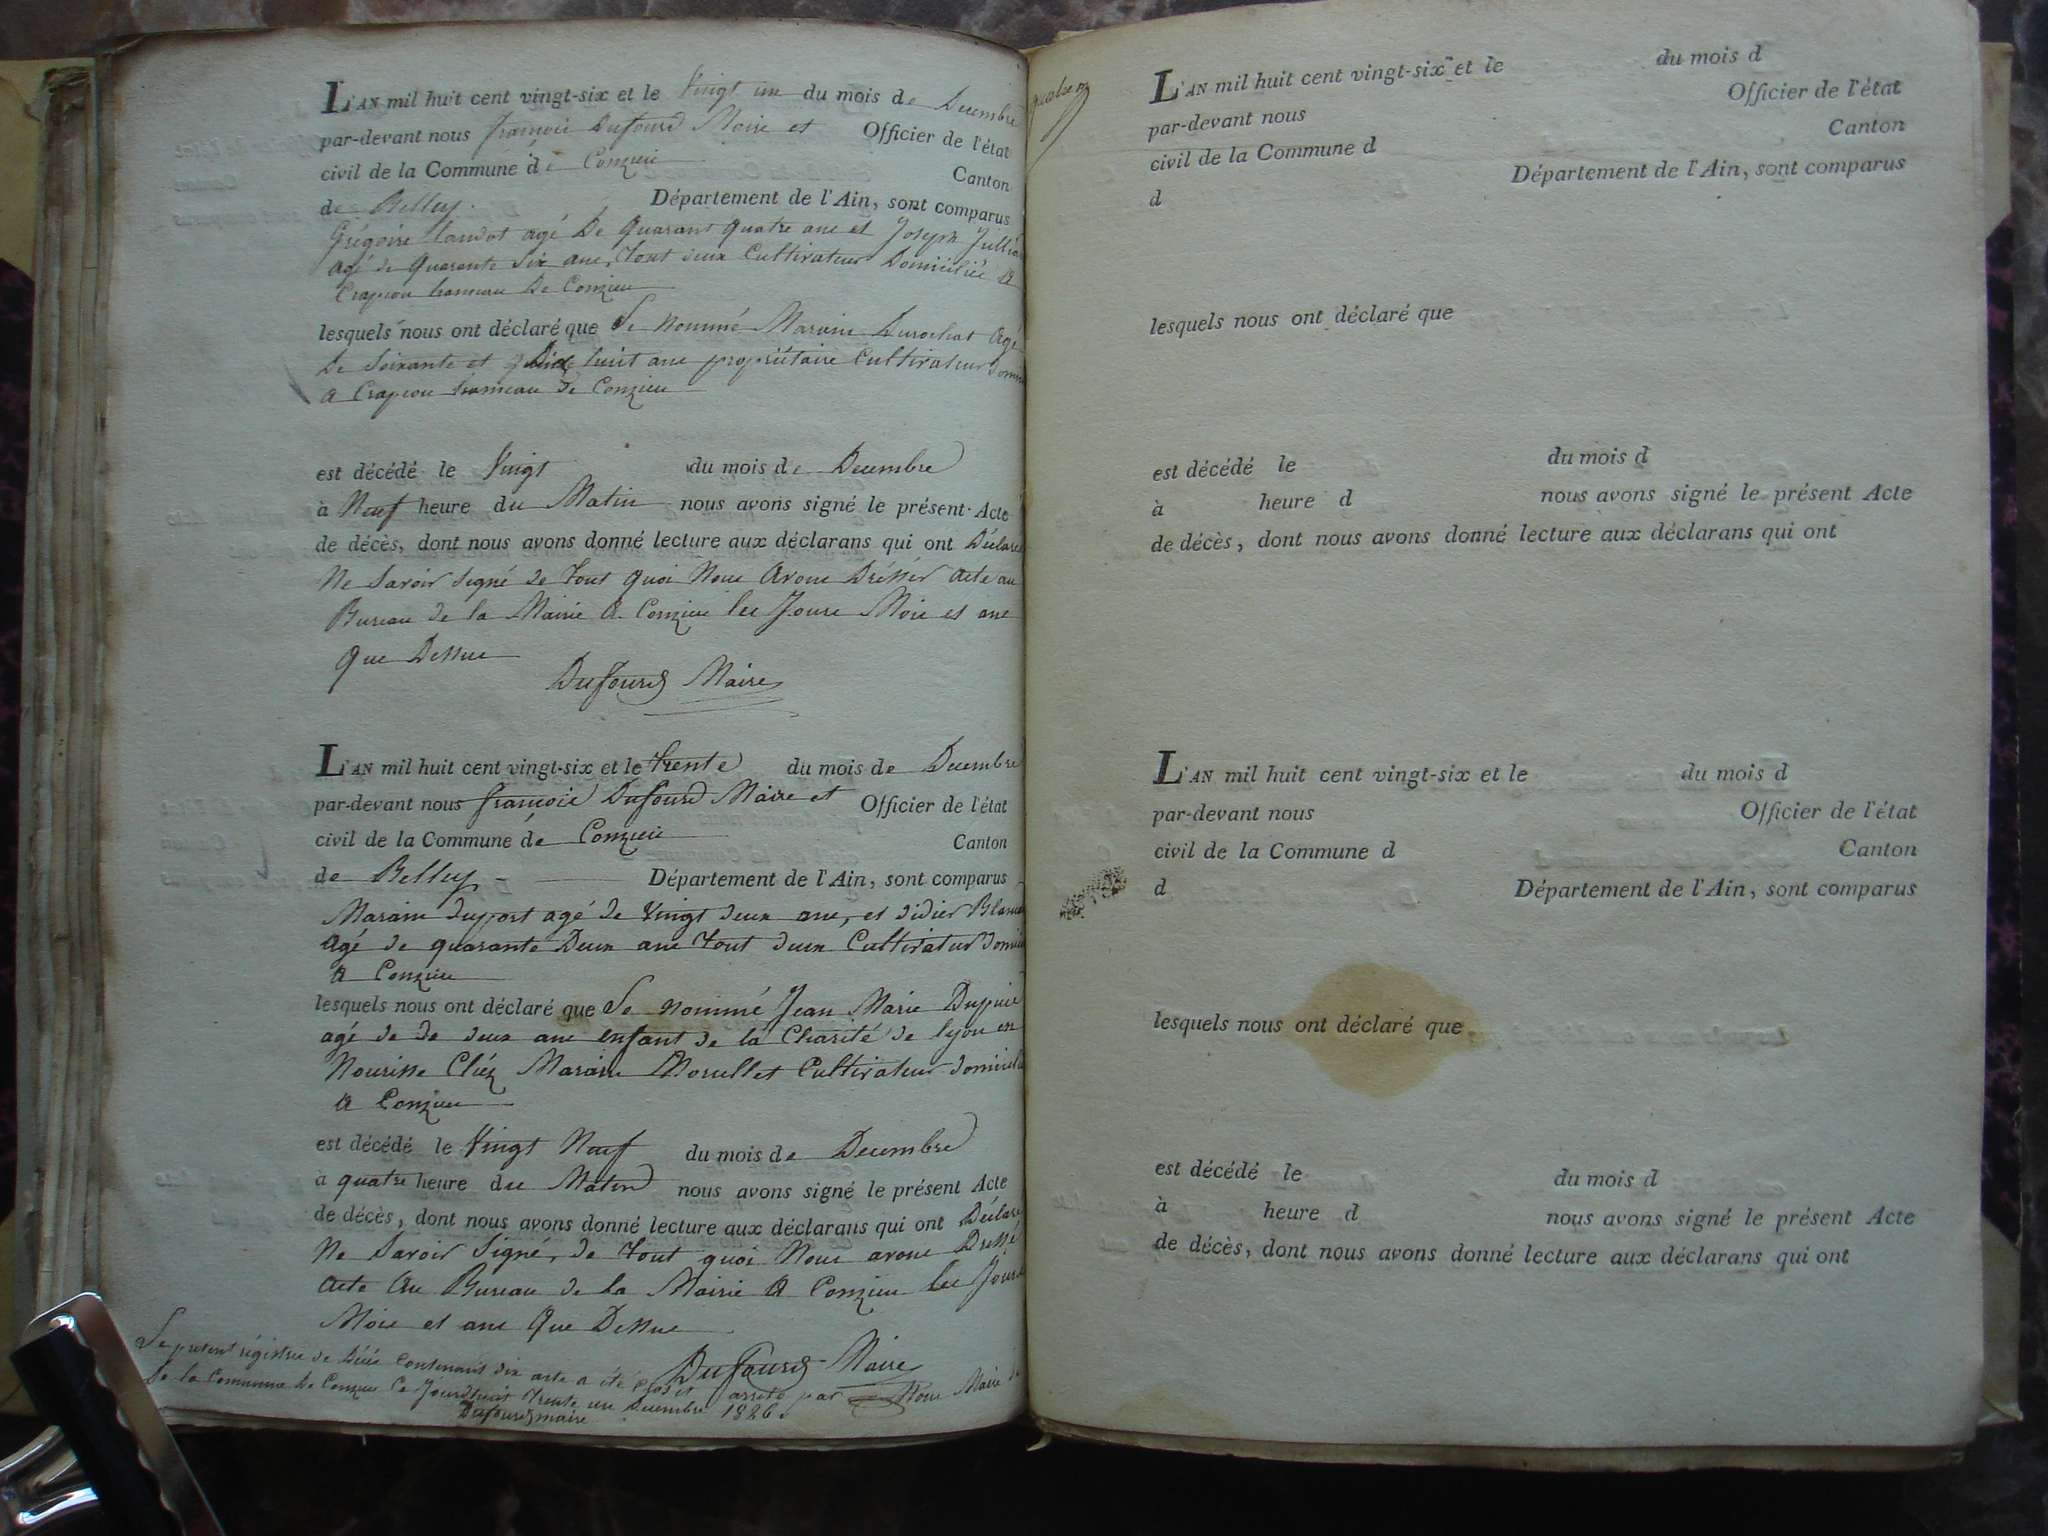 L'AN mil huit cent vingt-six et le Vingt un du mois de Decembre
par-devant nous françois Dufourd Maire et Officier de l'état
civil de la Commune de Conzieu Canton
de Belley. Département de l'Ain, sont comparus
Grégoire agé De Quarant quatre ans et Joseph
agé de Quarante Six ans, tout deux Cultivateur Domiciliés A
Crapeou hameau De Conzieu
lesquels nous ont déclaré que Le nommé Marain Durochat Agé
De Soixante et Dix huit ans propriétaire Cultivateur
A Crapeou hameau de Conzieu
est décédé le Vingt du mois de Decembre
à Neuf heure du Matin nous avons signé le présent Acte
de décès, dont nous avons donné lecture aux déclarans qui ont Déclaré
Ne Savoir Signé de tout quoi Nous Avons Dressér acte au
Bureau de la Mairie A Conzieu les Jours Mois et ans
Que Dessus
Dufourd Maire
L'AN mil huit cent vingt-six et le trente du mois de Decembre
par-devant nous françois Dufourd Maire et Officier de l'état
civil de la Commune de Conzieu Canton
de Belley Département de l'Ain, sont comparus
Marain duport agé de Vingt deux ans, et didier
agé de quarante Deux ans tout deux Cultivateur
A Conzieu
lesquels nous ont déclaré que Le nommé Jean Marie Dupuis
agé de De deux ans enfant de la Charité de lyon en
Nourisse Chéz Marain Morullet Cultivateur
A Conzieu
est décédé le Vingt Neuf du mois de Decembre
à quatre heure du Matin nous avons signé le présent Acte
de décès, dont nous avons donné lecture aux déclarans qui ont Déclaré
Ne Savoir Signé, de tout quoi Nous avons Dressé
acte Au Bureau de la Mairie A Conzieu les Jours
Mois et ans Que Dessus
Dufourd Maire
Le présent régistre de Décès Contenant dix acte a été clos et arrété par Nous Maire
De la Commune De Conzieu Ce Jourdhuit trente un Decembre 1826.
Dufourd maire
L'AN mil huit cent vingt-six et le du mois d
par-devant nous Officier de l'état
civil de la Commune d Canton
d Département de l'Ain, sont comparus
lesquels nous ont déclaré que
est décédé le du mois d
à heure d nous avons signé le présent Acte
de décès, dont nous avons donné lecture aux déclarans qui ont
L'AN mil huit cent vingt-six et le du mois d
par-devant nous Officier de l'état
civil de la Commune d Canton
d Département de l'Ain, sont comparus
lesquels nous ont déclaré que
est décédé le du mois d
à heure d nous avons signé le présent Acte
de décès, dont nous avons donné lecture aux déclarans qui ont